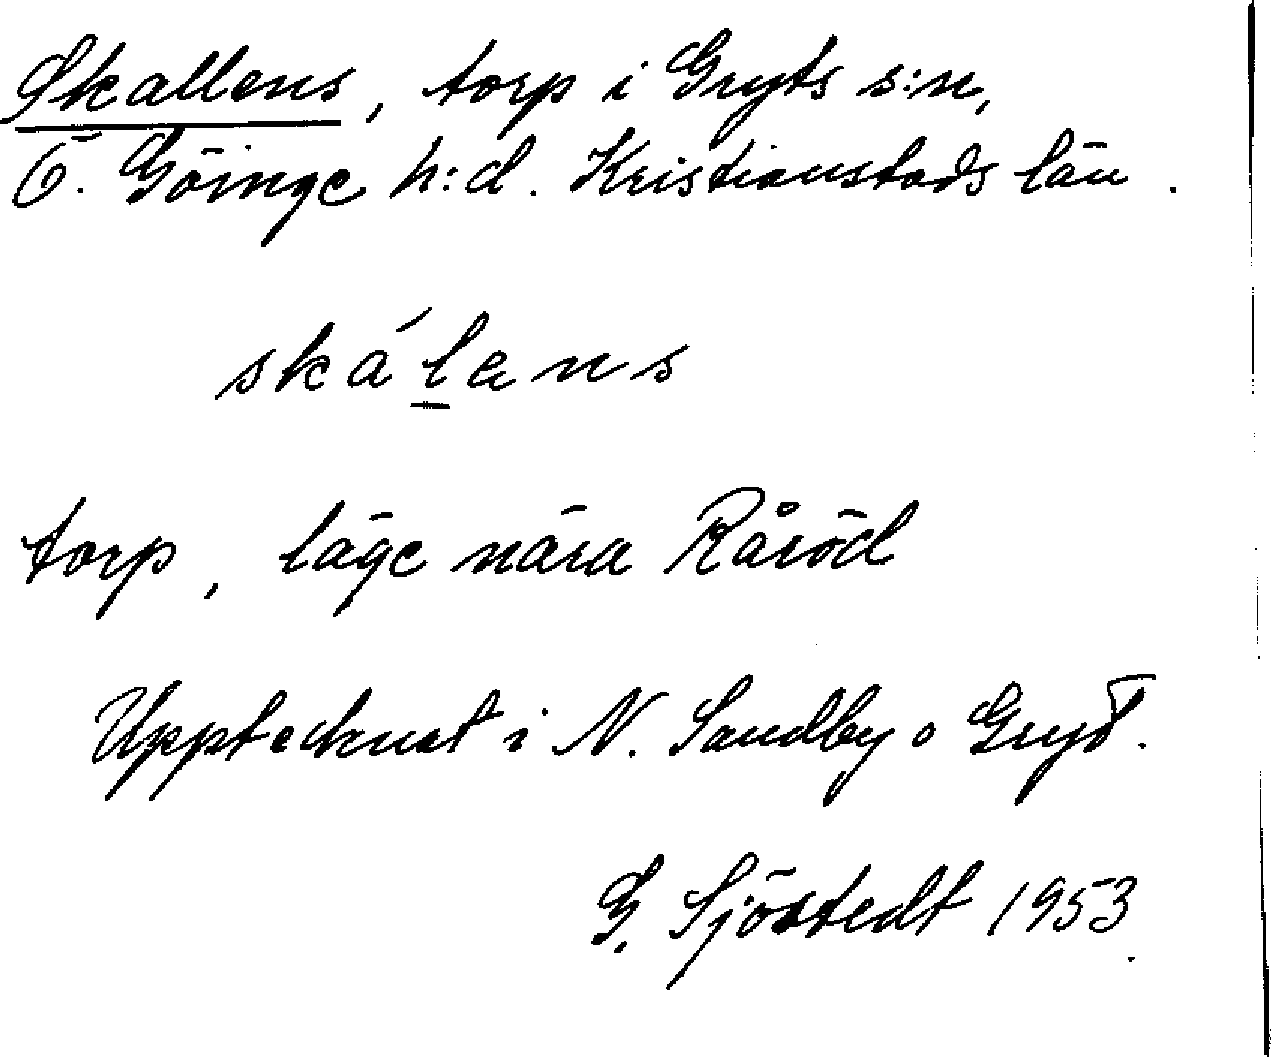 Skallens, torp i Gryts s:n,
Ö. Göinge h:d. Kristianstads län.
ská̱lens
torp, läge nära Råröd
Upptecknat i N. Sandby o Gryt.
G. Sjöstedt 1953.